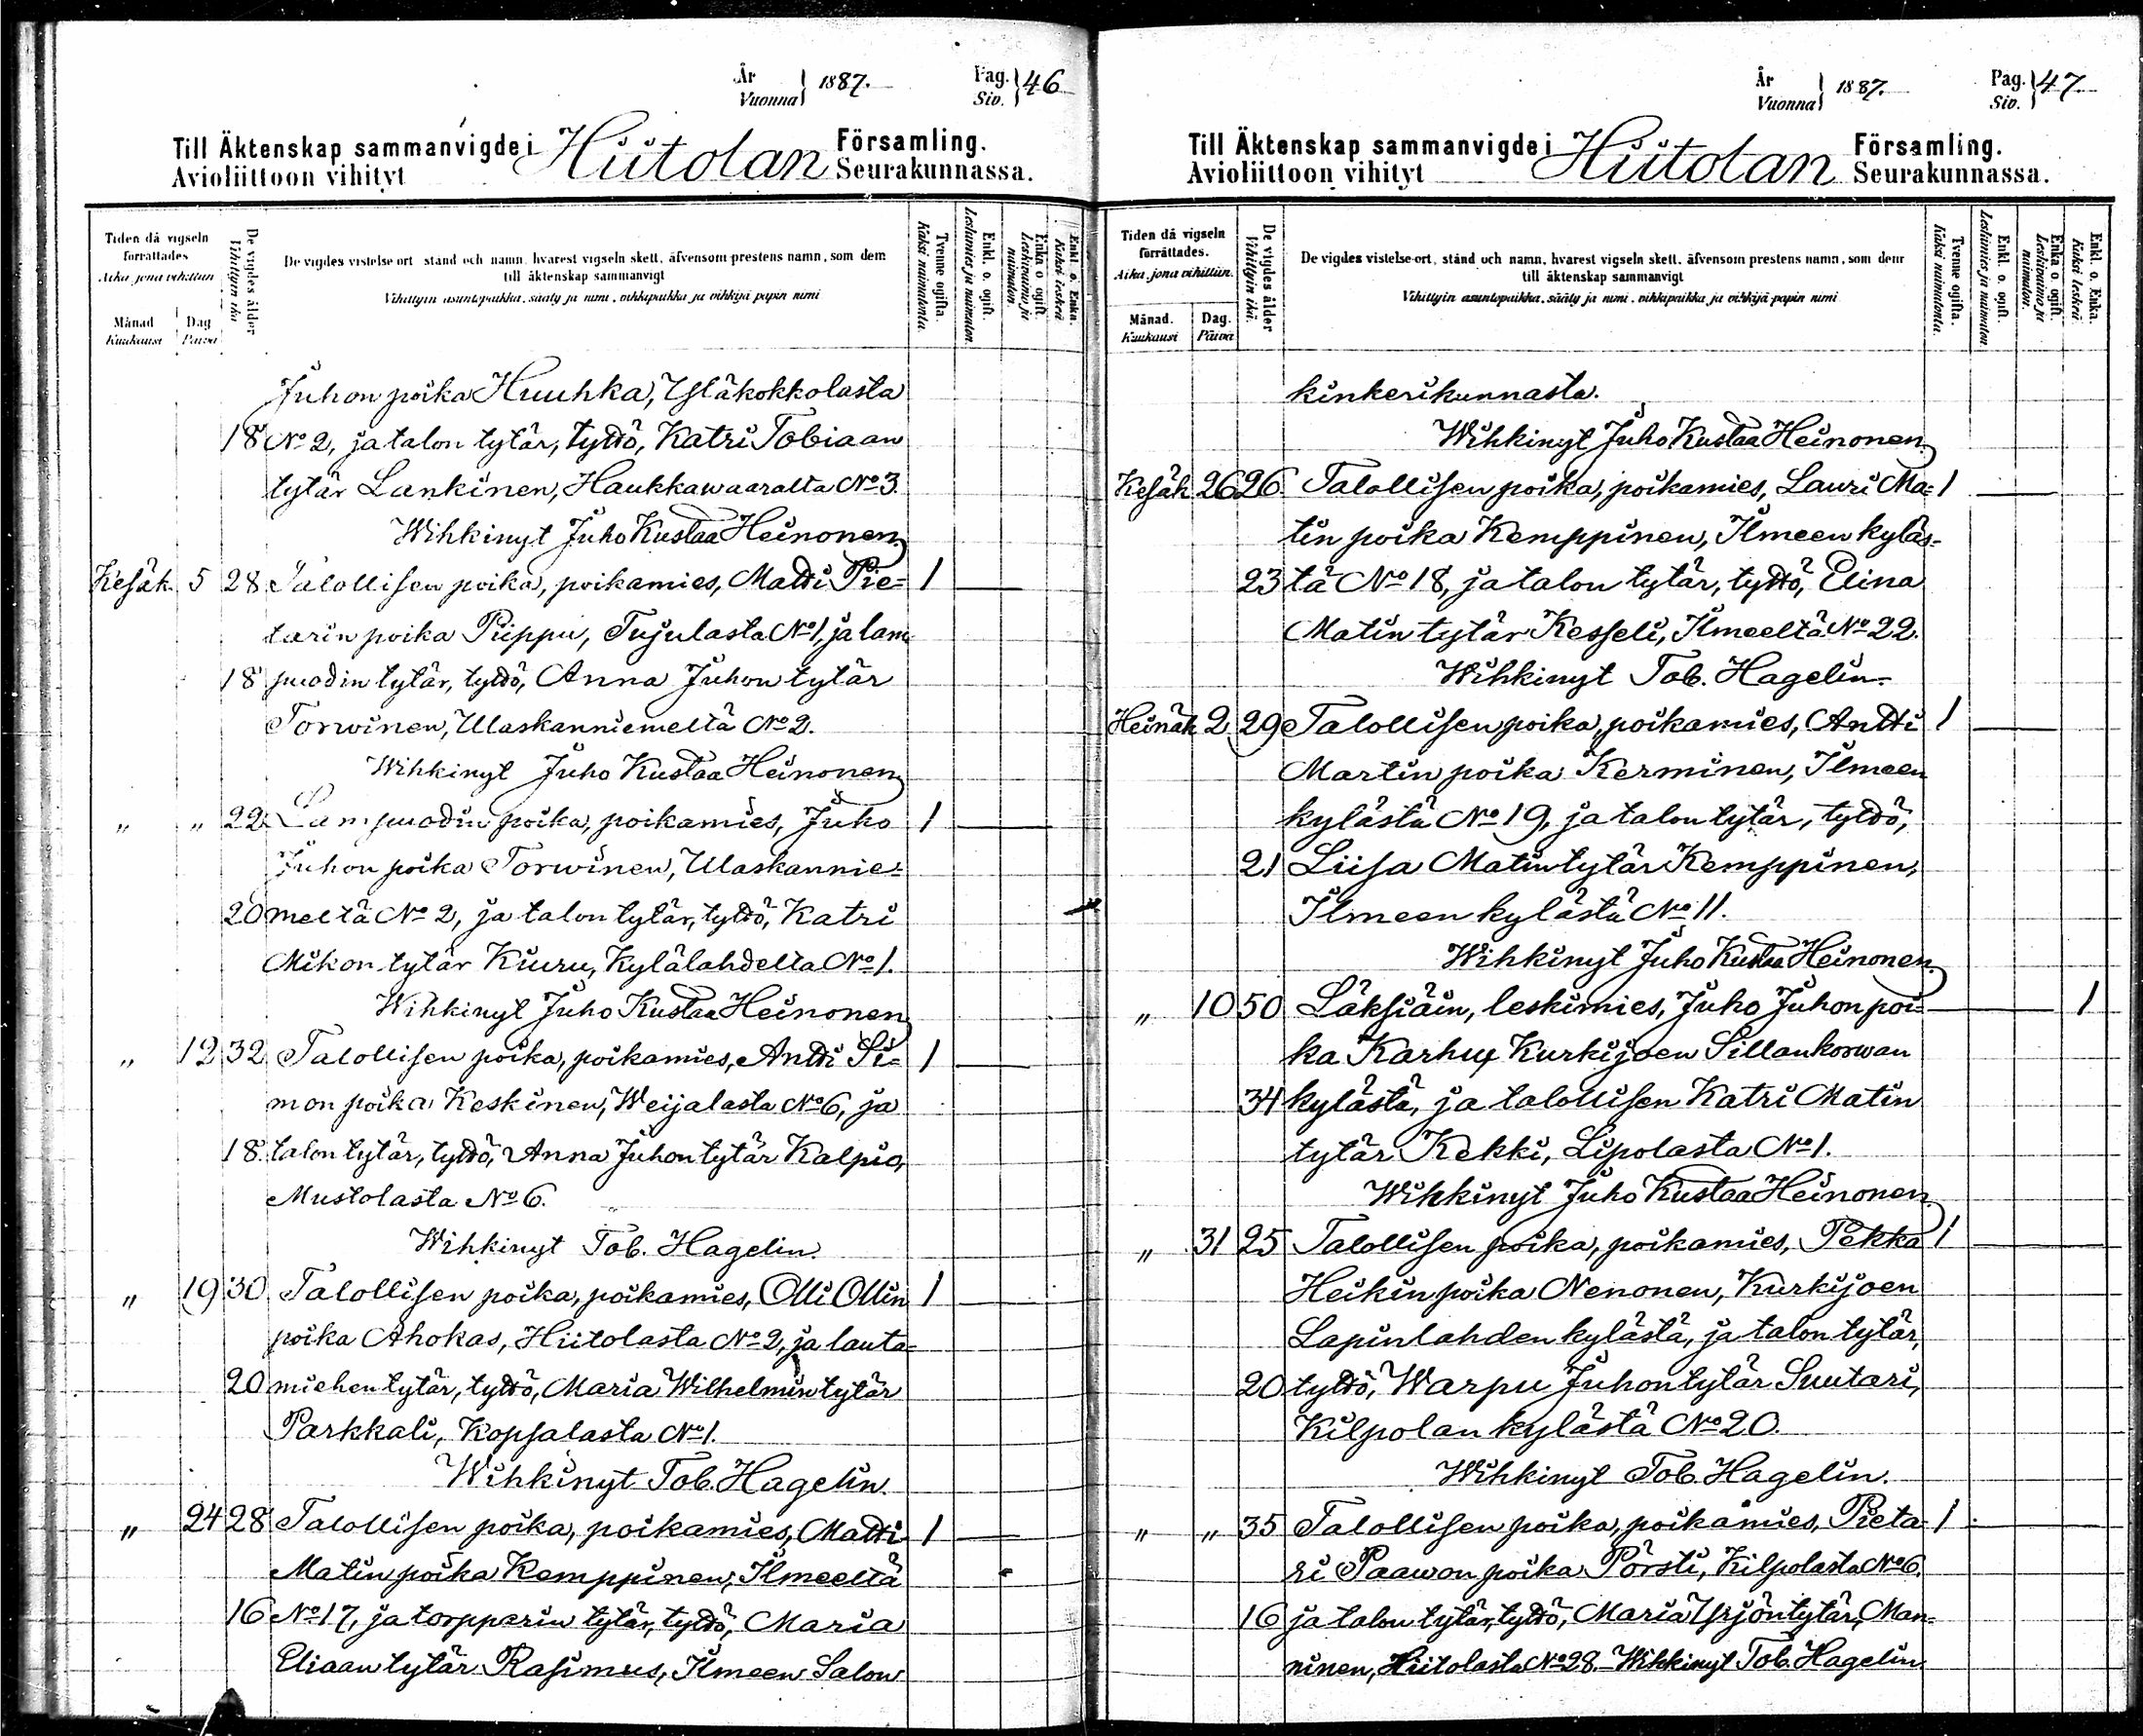 År Vuonna } 1887. Pag. Siv. } 46
Till Äktenskap sammanvigde i Hiitolan Församling.
Avioliittoon vihityt Seurakunnassa.
Tiden då vigseln förrättades
Aika jona vihittiin
Månad Kuukausi
Dag Päivä
De vigdes ålder
Vihittyin ikä
De vigdes vistelse ort, stånd och namn, hvarest vigseln skett, äfvensom prestens namn, som dem till äktenskap sammanvigt
Vihittyin asuntopaikka, sääty ja nimi, vihkipaikka ja vihkijä papin nimi
Tvenne ogifta.
Kaksi naimatonta.
Enkl. o. ogift.
Leskimies ja naimaton.
Enka o. ogift.
Leskivaimo ja naimaton
Enkl. o. Enka.
Kaksi leskeä
Juhon poika Huuhka, Yläkokkolasta
18 No 2, ja talon tytär, tyttö, Katri Tobiaan
tytär Lankinen, Haukkawaaralta No 3.
Wihkinyt Juho Kustaa Heinonen
Kesäk. 5 28 Talollisen poika, poikamies, Matti Pie= 1
tarin poika Piippu, Tujulasta No 1, ja lam
18 puodin tytär, tyttö, Anna Juhon tytär
Torwinen, Ulaskanniemeltä No 2.
Wihkinyt Juho Kustaa Heinonen
" " 22 Lampuodin poika, poikamies, Juho 1
Juhon poika Torwinen, Ulaskannie=
20 meltä No 2, ja talon tytär, tyttö, Katri
Mikon tytär Kiuru, Kylälahdelta No 1.
Wihkinyt Juho Kustaa Heinonen
" 12 32 Talollisen poika, poikamies, Antti Si= 1
mon poika Keskinen, Weijalasta No 6, ja
18. talon tytär, tyttö, Anna Juhon tytär Kalpio,
Mustolasta No 6.
Wihkinyt Tob. Hagelin.
" 19 30 Talollisen poika, poikamies, Olli Ollin 1
poika Ahokas, Hiitolasta No 2, ja lauta=
20 miehen tytär, tyttö, Maria Wilhelmin tytär
Parkkali, Kopsalasta No 1.
Wihkinyt Tob. Hagelin.
" 24 28 Talollisen poika, poikamies, Matti 1
Matin poika Kemppinen, Ilmeeltä
16 No 17, ja torpparin tytär, tyttö, Maria
Eliaan tytär Rasimus, Ilmeen Salon
År Vuonna } 1887. Pag. Siv. } 47
Till Äktenskap sammanvigde i Hiitolan Församling.
Avioliittoon vihityt Seurakunnassa.
Tiden då vigseln förrättades.
Aika jona vihittiin.
Månad. Kuukausi
Dag. Päivä
De vigdes ålder
Vihittyin ikä.
De vigdes vistelse-ort, stånd och namn, hvarest vigseln skett, äfvensom prestens namn, som dem till äktenskap sammanvigt
Vihittyin asuntopaikka, sääty ja nimi, vihkipaikka ja vihkijä papin nimi
Tvenne ogifta.
Kaksi naimatonta.
Enkl. o. ogift.
Leskimies ja naimaton
Enka o. ogift.
Leskivaimo ja naimaton.
Enkl. o. Enka.
Kaksi leskeä
kinkerikunnasta.
Wihkinyt Juho Kustaa Heinonen
Kesäk 26 26 Talollisen poika, poikamies, Lauri Ma= 1
tin poika Kemppinen, Ilmeen kyläs=
23 tä No 18, ja talon tytär, tyttö, Elina
Matin tytär Kesseli, Ilmeeltä No 22.
Wihkinyt Tob. Hagelin.
Heinäk 2 29 Talollisen poika, poikamies, Antti 1
Martin poika Kerminen, Ilmeen
kylästä No 19, ja talon tytär, tyttö,
21 Liisa Matin tytär Kemppinen,
Ilmeen kylästä No 11.
Wihkinyt Juho Kustaa Heinonen
" 10 50 Läksiäin, leskimies, Juho Juhon poi= 1
ka Karhu, Kurkijoen Sillankorwan
34 kylästä, ja talollisen Katri Matin
tytär Kekki, Lipolasta No 1.
Wihkinyt Juho Kustaa Heinonen
" 31 25 Talollisen poika, poikamies, Pekka 1
Heikin poika Nenonen, Kurkijoen
Lapinlahden kylästä, ja talon tytär,
20 tyttö, Warpu Juhon tytär Suutari,
Kilpolan kylästä No 20.
Wihkinyt Tob. Hagelin.
" " 35 Talollisen poika, poikamies, Pieta= 1
ri Paawon poika Pörsti, Kilpolasta No 6.
16 ja talon tytär, tyttö, Maria Yrjön tytär, Man=
ninen, Hiitolasta No 28. Wihkinyt Tob. Hagelin.